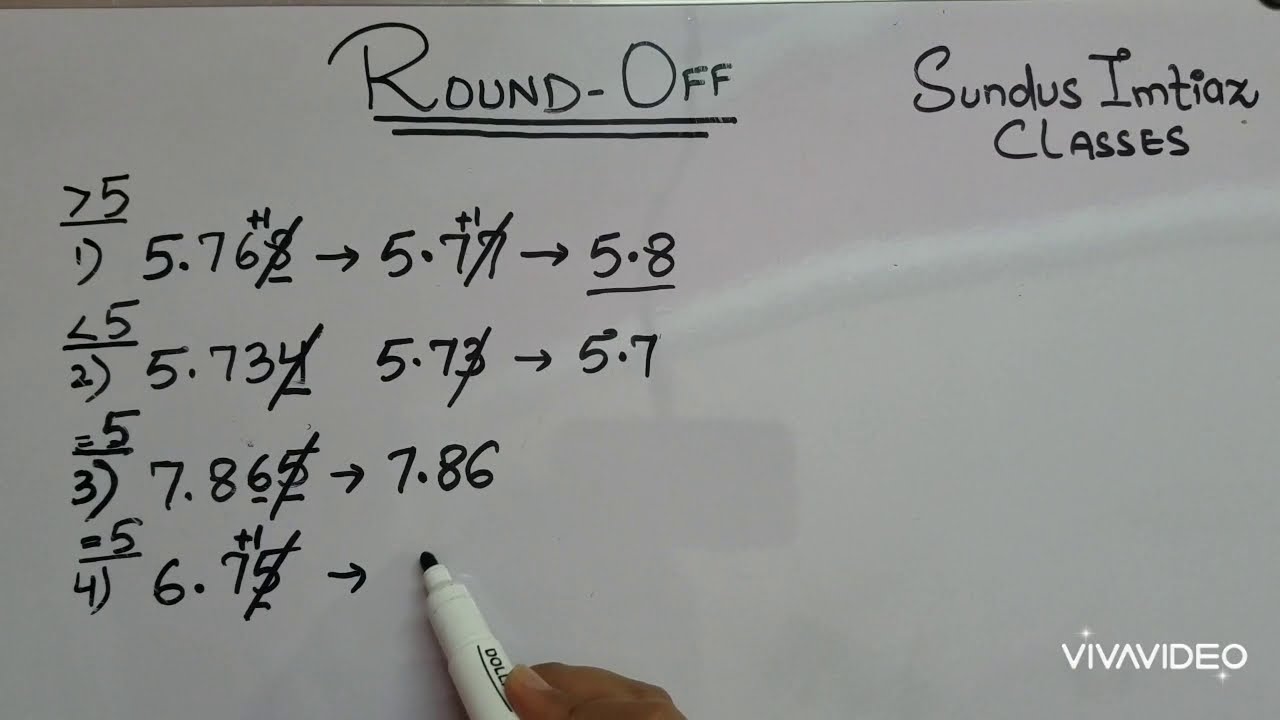 ROUND-OFF
Sundus Imtiaz
CLASSES
>5
1) 5.768 +1 → 5.77 +1 → 5.8
<5
2) 5.734 5.73 → 5.7
=5
3) 7.865 → 7.86
=5
4) 6.75 +1 →
DOLL
VIVAVIDEO